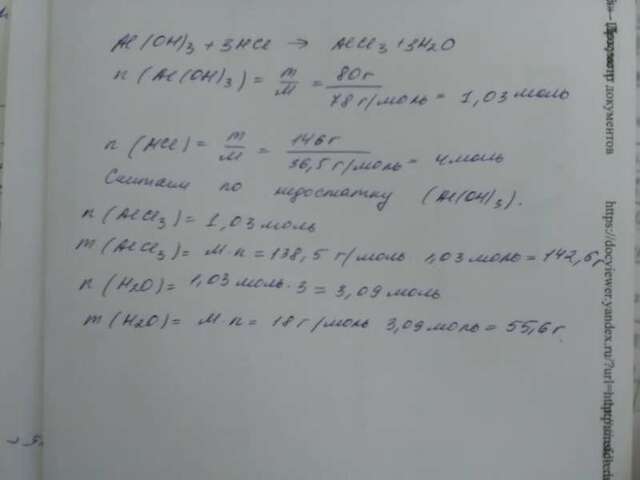 Al(OH)₃ + 3HCl → AlCl₃ + 3H₂O
n(Al(OH)₃) = m/M = 80 г / 78 г/моль = 1,03 моль
n(HCl) = m/M = 146 г / 36,5 г/моль = 4 моль
Считаем по недостатку (Al(OH)₃).
n(AlCl₃) = 1,03 моль
m(AlCl₃) = M·n = 138,5 г/моль 1,03 моль = 142,6 г
n(H₂O) = 1,03 моль · 3 = 3,09 моль
m(H₂O) = M·n = 18 г/моль 3,09 моль = 55,6 г.
документов
https://docviewer.yandex.ru/?url=